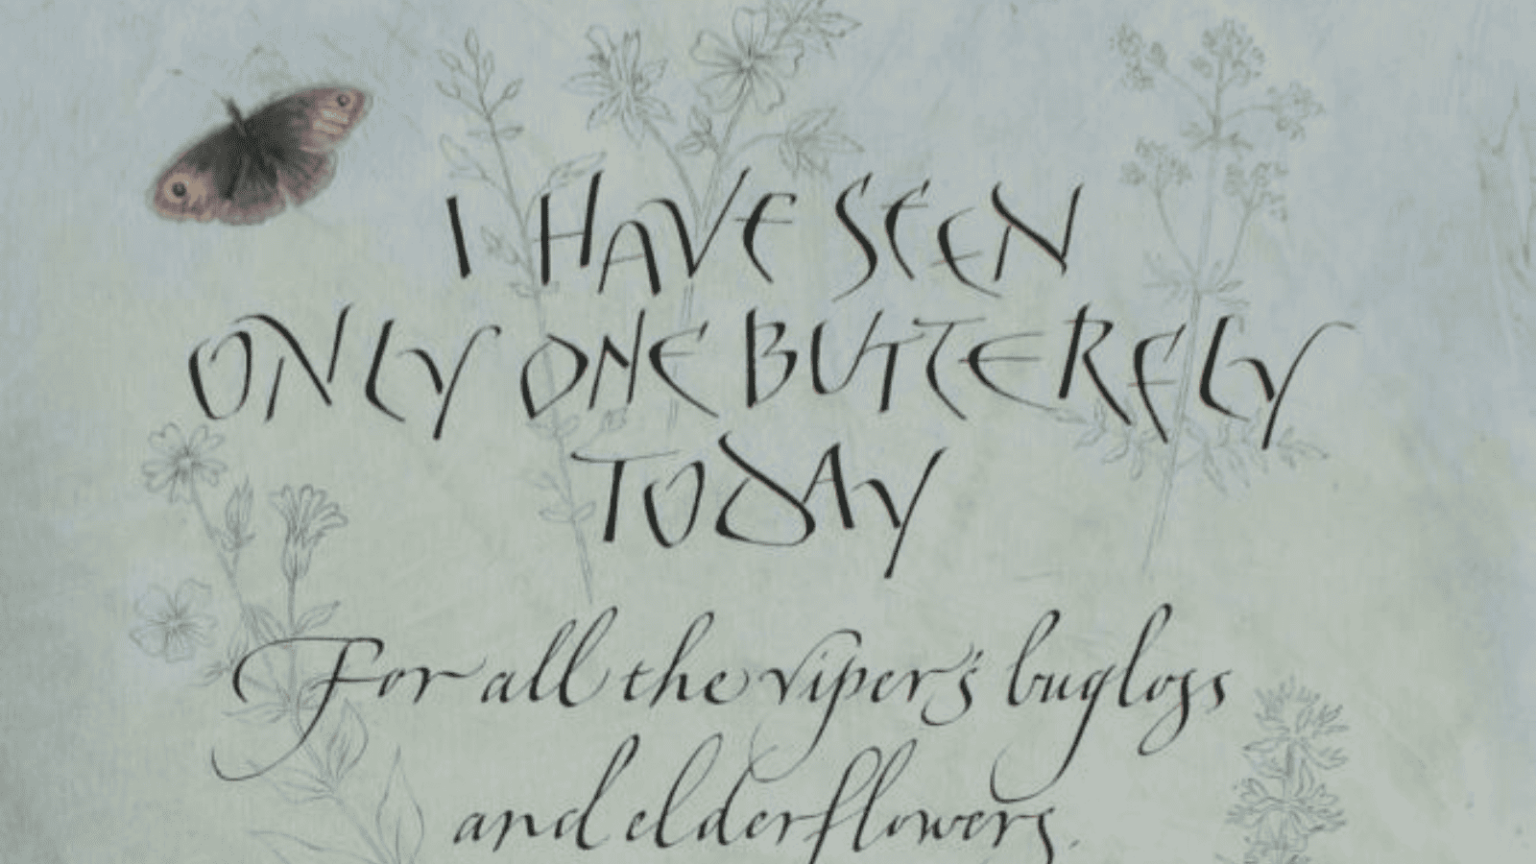 I HAVE SEEN
ONLY ONE BUTTERFLY
TODAY
For all the viper's bugloss
and elderflowers.